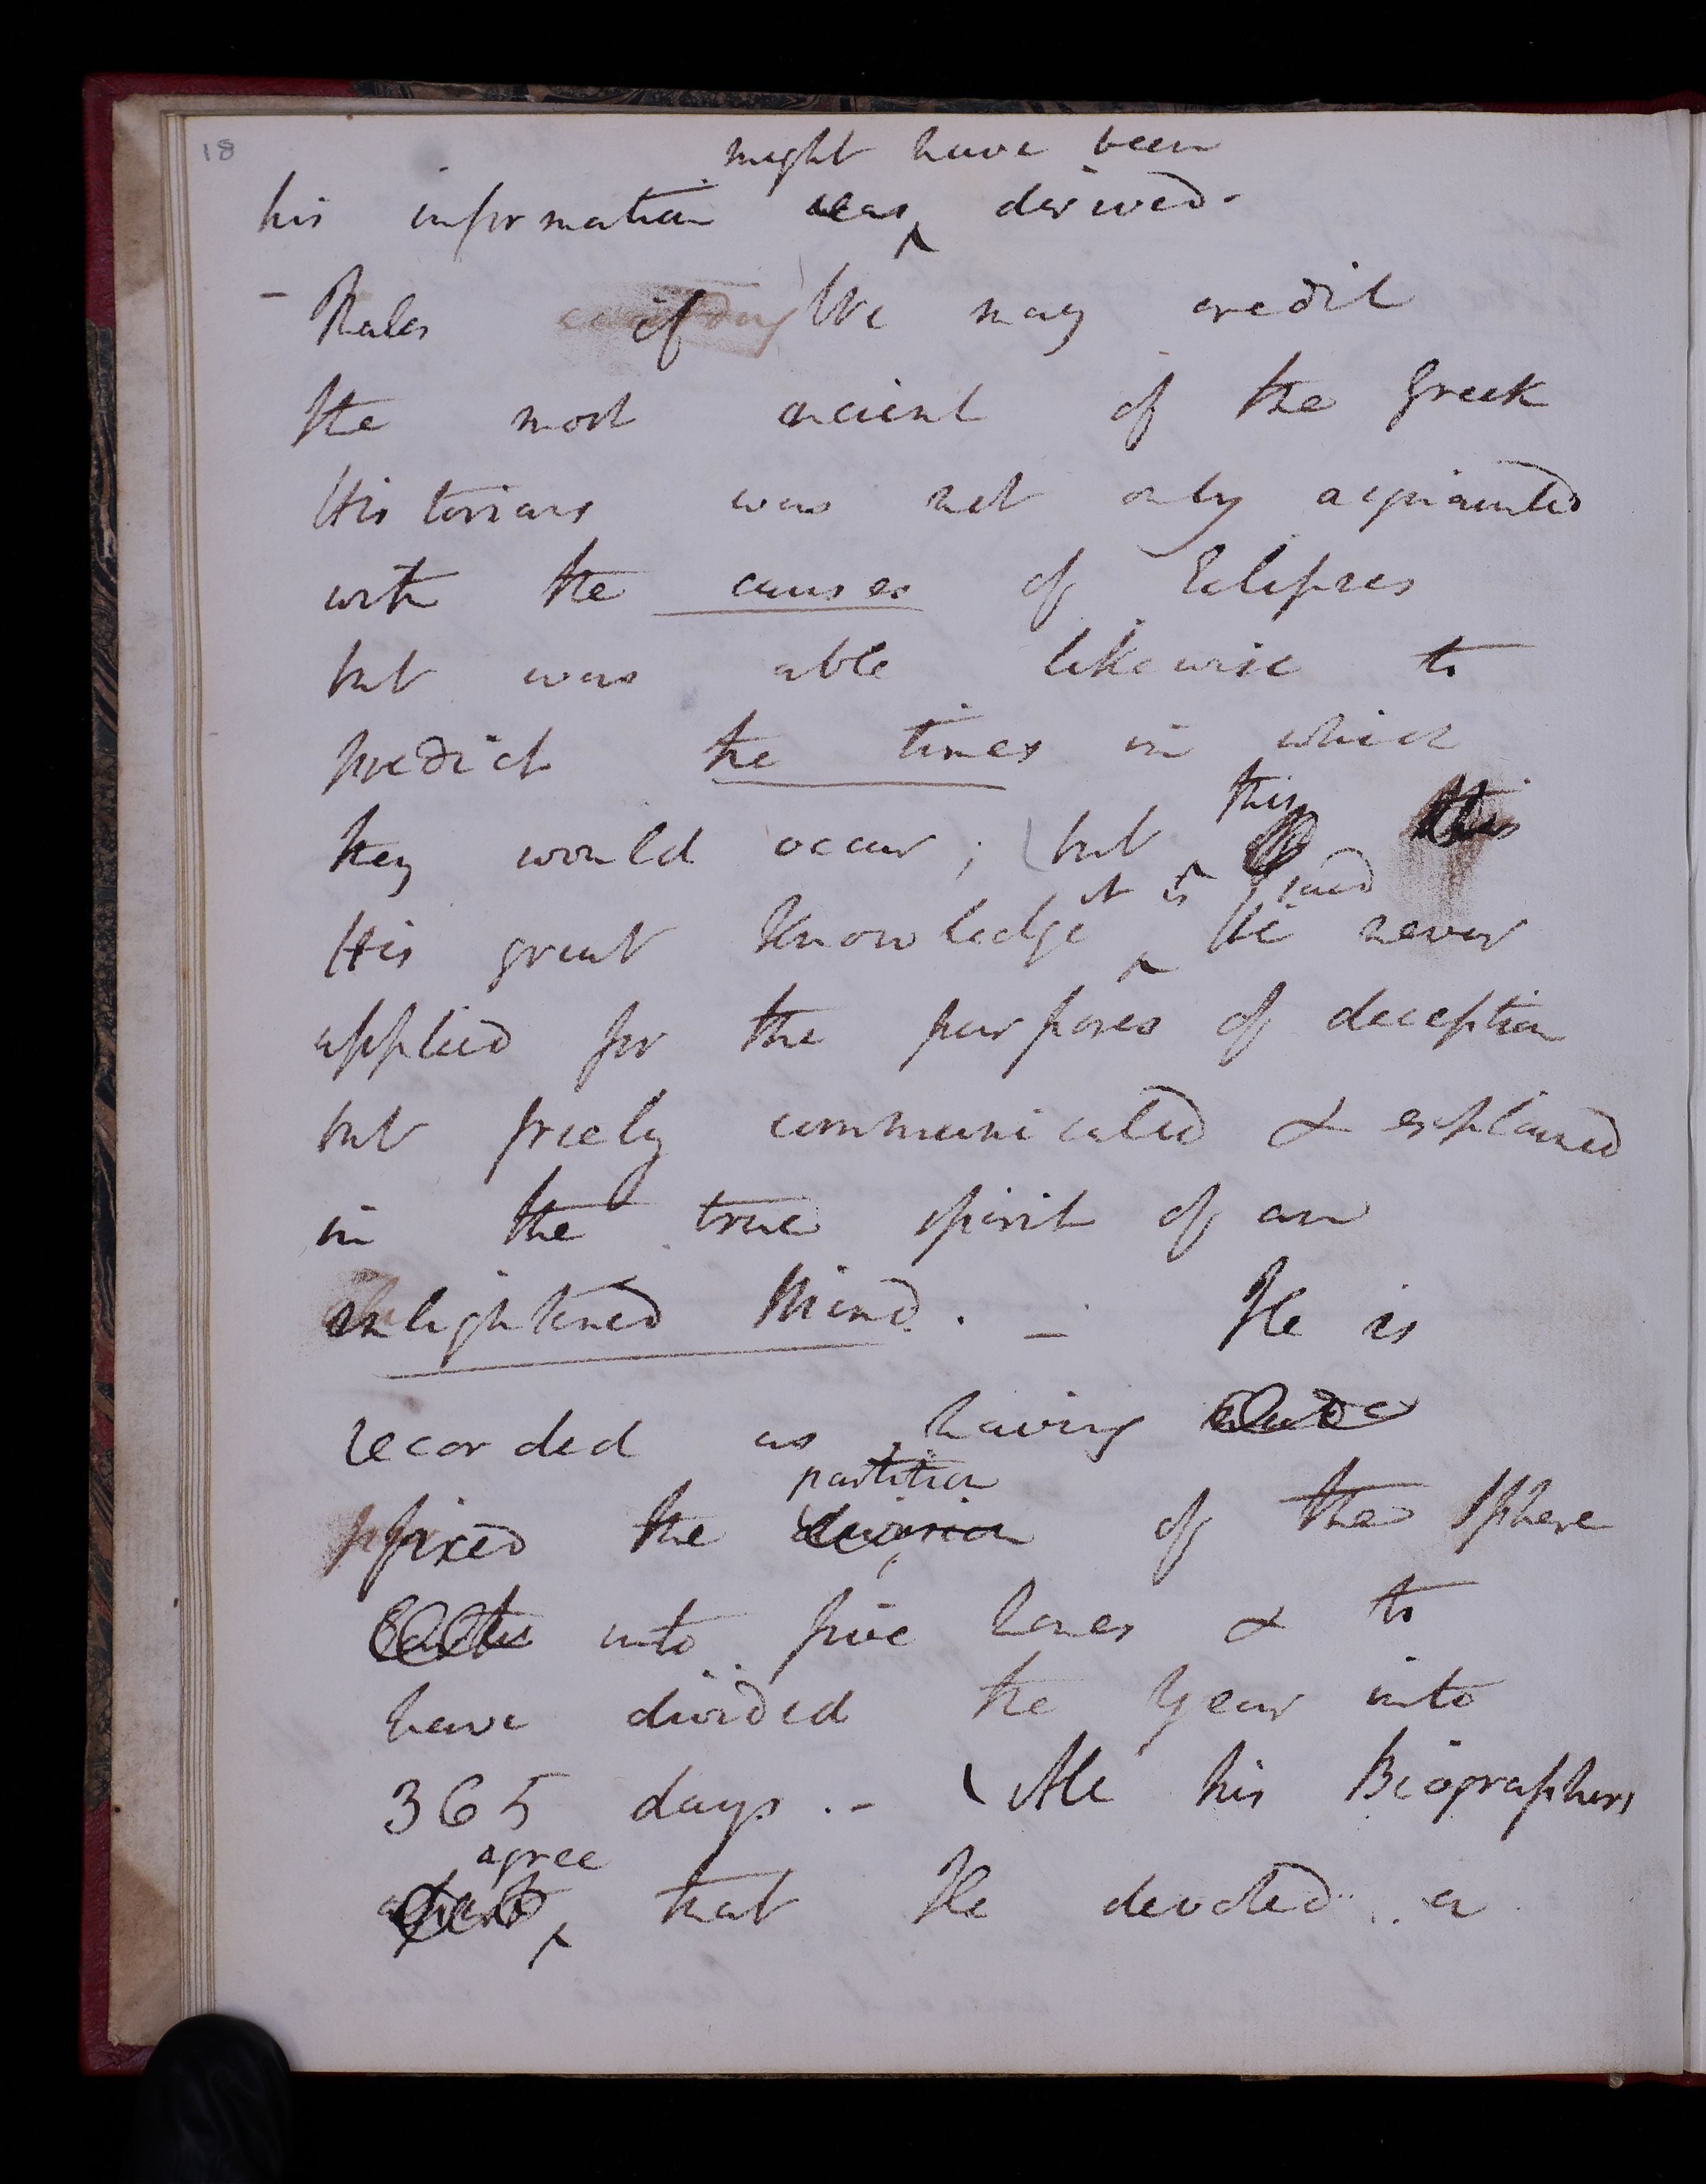 18
might have been
his information was derived.
- Thales if We may credit
the most ancient of the Greek
Historians was not only acquainted
with the causes of Eclipses
but was able likewise to
predict the times in which
they would occur; but this
it is said
His great knowledge He never
applied for the purposes of deception
but freely communicated & explained
in the true spirit of an
enlightened Mind. - He is
recorded as having
partition
fixed the division of the Sphere
Earth into five Zones & to
have divided the Year into
365 days. - All his Biographers
agree
that He devoted a